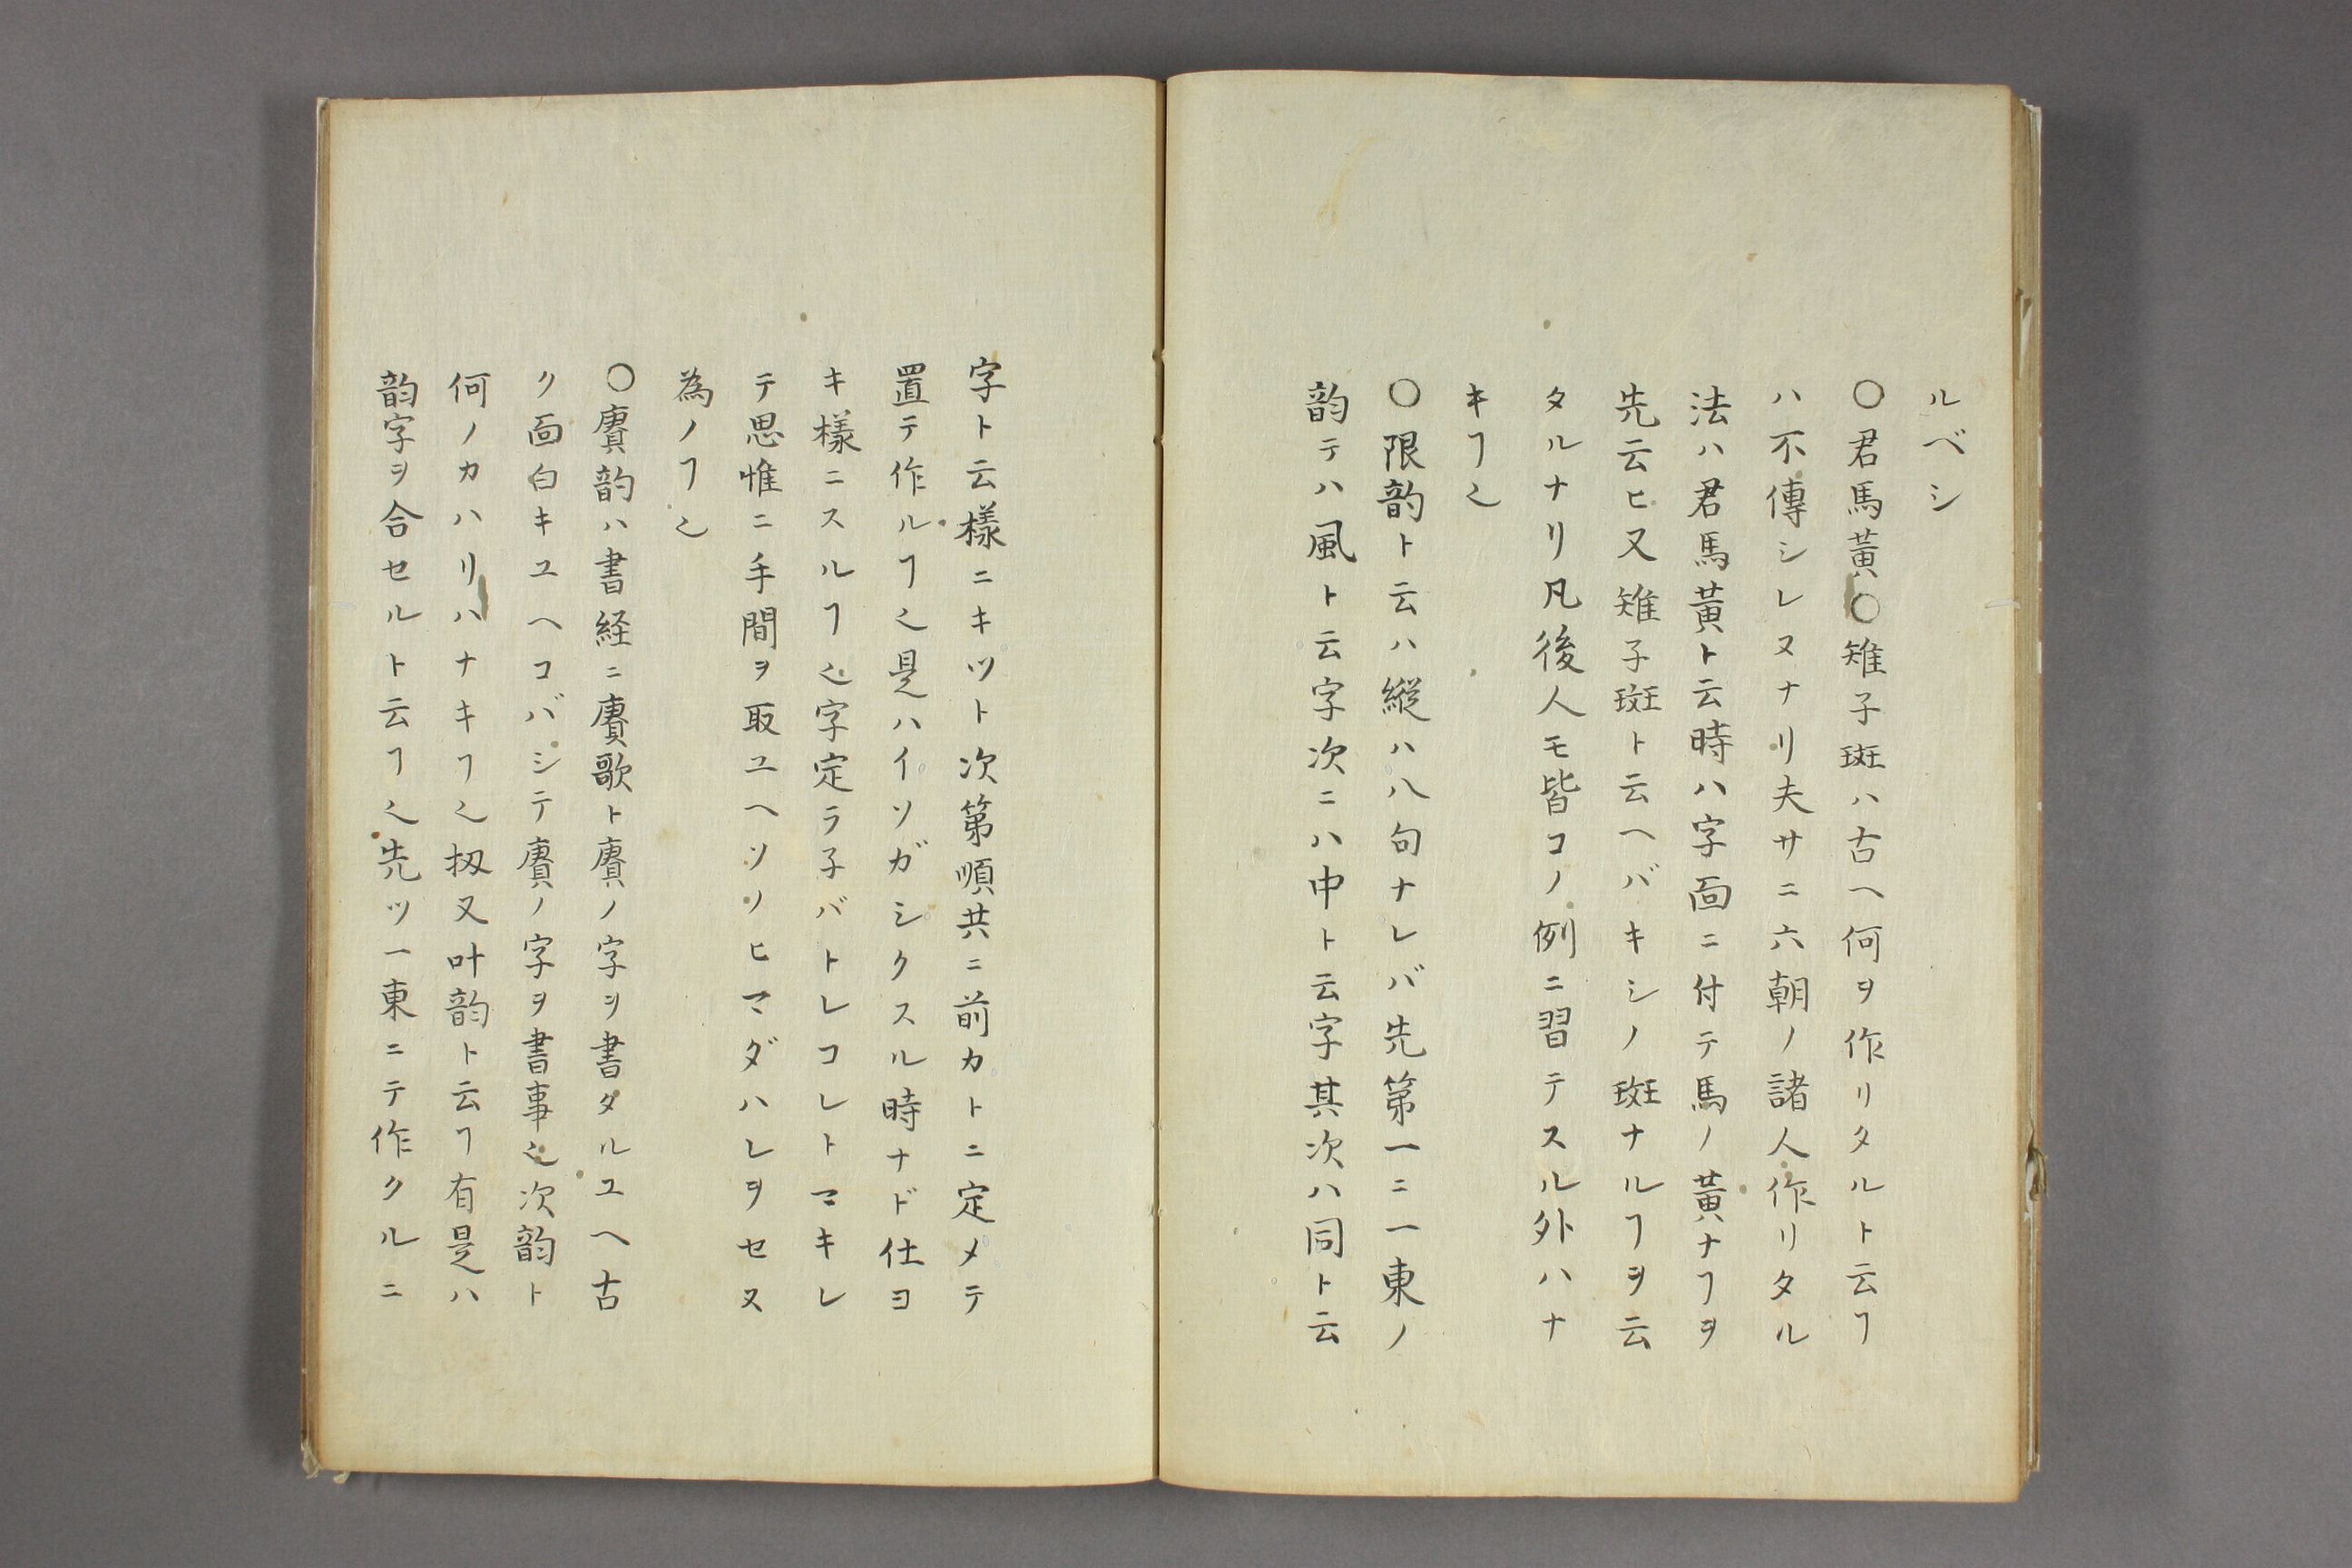 ルベシ
〇君馬黄〇雉子斑ハ古ヘ何ヲ作リタルト云ヿ
ハ不傳シレヌナリ夫サニ六朝ノ諸人作リタル
法ハ君馬黄ト云時ハ字面ニ付テ馬ノ黄ナヿヲ
先云ヒ又雉子斑ト云ヘバキシノ斑ナルヿヲ云
タルナリ凡後人モ皆コノ例ニ習テスル外ハナ
キヿ𪜈
〇限韵ト云ハ縦ハ八句ナレバ先第一ニ一東ノ
韵テハ風ト云字次ニハ中ト云字其次ハ同ト云
字ト云様ニキツト次第順共ニ前カトニ定メテ
置テ作ルヿ之是ハイソガシクスル時ナド仕ヨ
キ様ニスルヿ之字定ラ子バトレコレトマキレ
テ思惟ニ手間ヲ取ユヘソノヒマダハレヲセヌ
為ノヿ之
〇賡韵ハ書経ニ賡歌ト賡ノ字ヲ書タルユヘ古
ク面白キユヘコバシテ賡ノ字ヲ書事之次韵ト
何ノカハリハナキヿ之扨又叶韵ト云ヿ有是ハ
韵字ヲ合セルト云ヿ之先ツ一東ニテ作クルニ